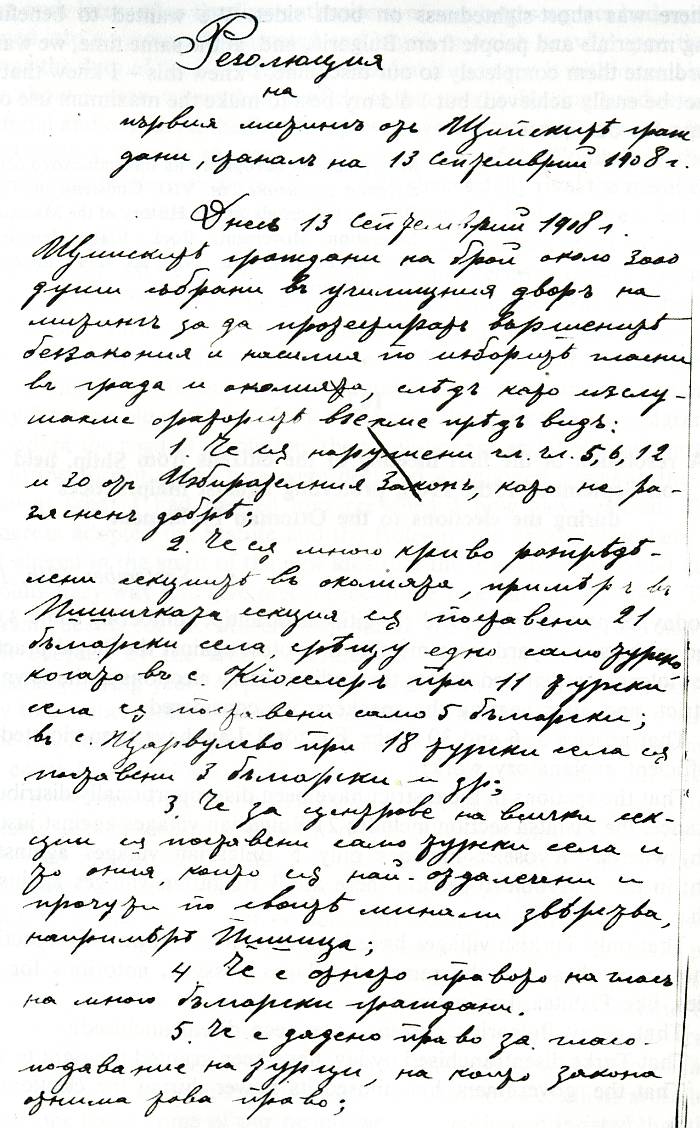 Резолюция
на
първия митингъ отъ Щипскитѣ граж
дани, станалъ на 13 Септемврий 1908 г.
Днесъ 13 Септемврий 1908 г.
Щипскитѣ граждани на брой около 3000
души събрани въ училищния дворъ на
митингъ за да протестиратъ вършенитѣ
беззакония и насилия по изборитѣ гласни
въ града и околията, слѣдъ като изслу-
шахме ораторитѣ взехме прѣдъ видъ:
1 Че сѫ нарушени чл. чл. 5, 6, 12
и 30 отъ Избирателния законъ като не ра-
зясненъ добрѣ;
2 Че сѫ много криво разпрѣдѣ-
лени секциитѣ въ околията, примѣръ въ
Пишичката секция сѫ поставени 21
български села срѣщу едно само турско
когато въ с. Кйоселеръ при 11 турски
села сѫ поставени само 5 български;
въ с. Църvулево при 18 турски села сѫ
поставени 3 български и др.
3 Че за центрове на всички сек-
ции сѫ поставени само турски села и
то ония които сѫ най-отдалечени и
прочути по своитѣ минали звѣрства,
напримѣръ Пишица;
4 Че е отнето правото на гласъ
на много български граждани.
5. Че е дадено право за гласо
подаване на турци, на които закона
отнима това право;